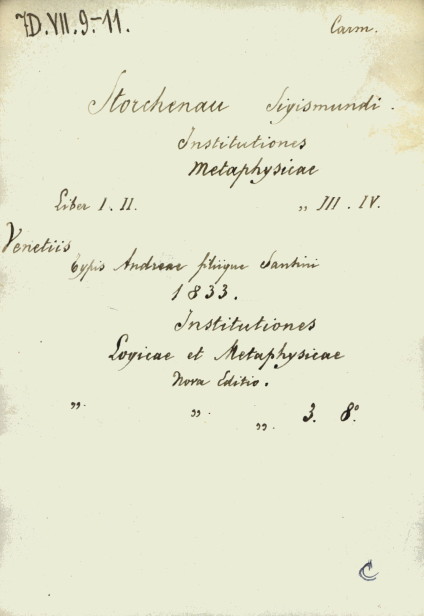 7D.VII.9.-11. Carm.
Storchenau Sigismundi.
Institutiones
Metaphysicae
Liber I. II. „ III. IV.
Venetiis
typis Andreae filiique Santini
1833.
Institutiones
Logicae et Metaphysicae
Nova Editio.
„. „. „. 3. 8°